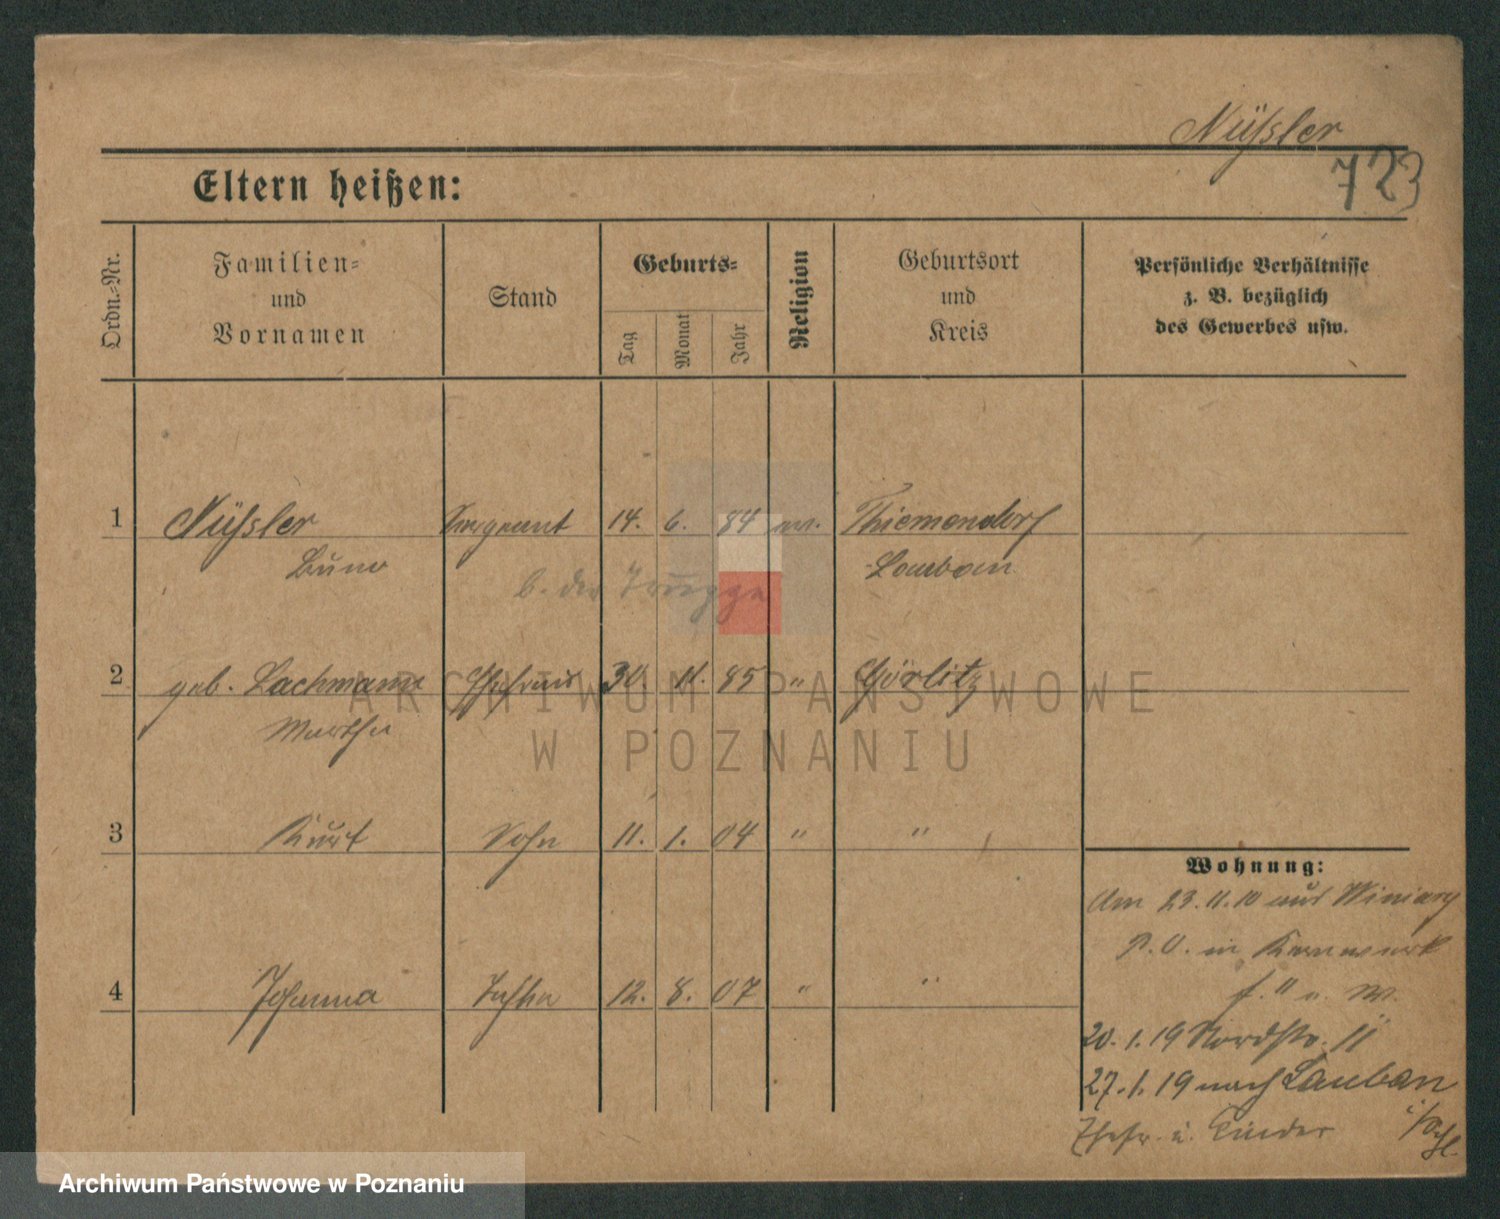 Nüßler
723
Eltern heißen:
Ordn.-Nr.
Familien- und Vornamen
Stand
Geburts-
Tag
Monat
Jahr
Religion
Geburtsort und Kreis
Persönliche Verhältnisse
z. B. bezüglich
des Gewerbes usw.
1 Nüßler Sergeant 14. 6. 84 ev. Thiemendorf
Lauban
b. der Truppe
2 geb. Lachmann Ehefrau 30 11. 85 " Görlitz
Martha
3 Kurt Sohn 11. 1. 04 " "
Wohnung:
Am 23.11.10 aus Winiary
P.O. in Kernwerk
4 Johanna Tochter 12. 8. 07 " "
20.1.19 Nordstr. 11
27.1.19 nach Lauban
Ehefr. u. Kinder
ARCHIWUM PAŃSTWOWE
W POZNANIU
Archiwum Państwowe w Poznaniu